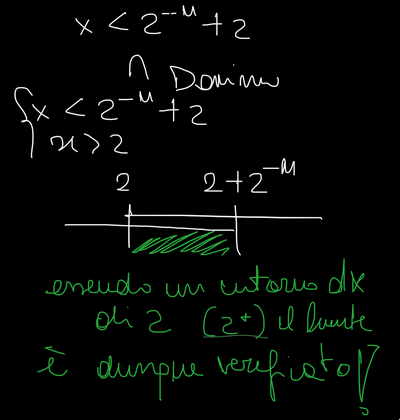 x < 2^-M + 2
∩ Dominio
{x < 2^-M + 2
x > 2
2 2 + 2^-M
essendo un intorno dx
di 2 (2⁺) il limite
è dunque verificato!